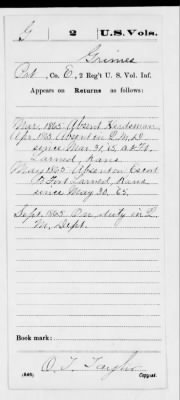 G | 2 | U.S. Vols.
Grimes
Pvt., Co. E, 2 Reg't U. S. Vol. Inf.
Appears on Returns as follows:
Mar. 1865 Absent Herdsman
Apr. 1865 Absent on D. M. D.
since Mar. 31, 65, at Ft.
Larned, Kans
May 1865 Absent on Escort
to Fort Larned, Kans
since May 30, 65.
Sept. 1865 On duty in Q.
M. Dept.
Book mark:
O. T. Taylor
(546) Copyist.